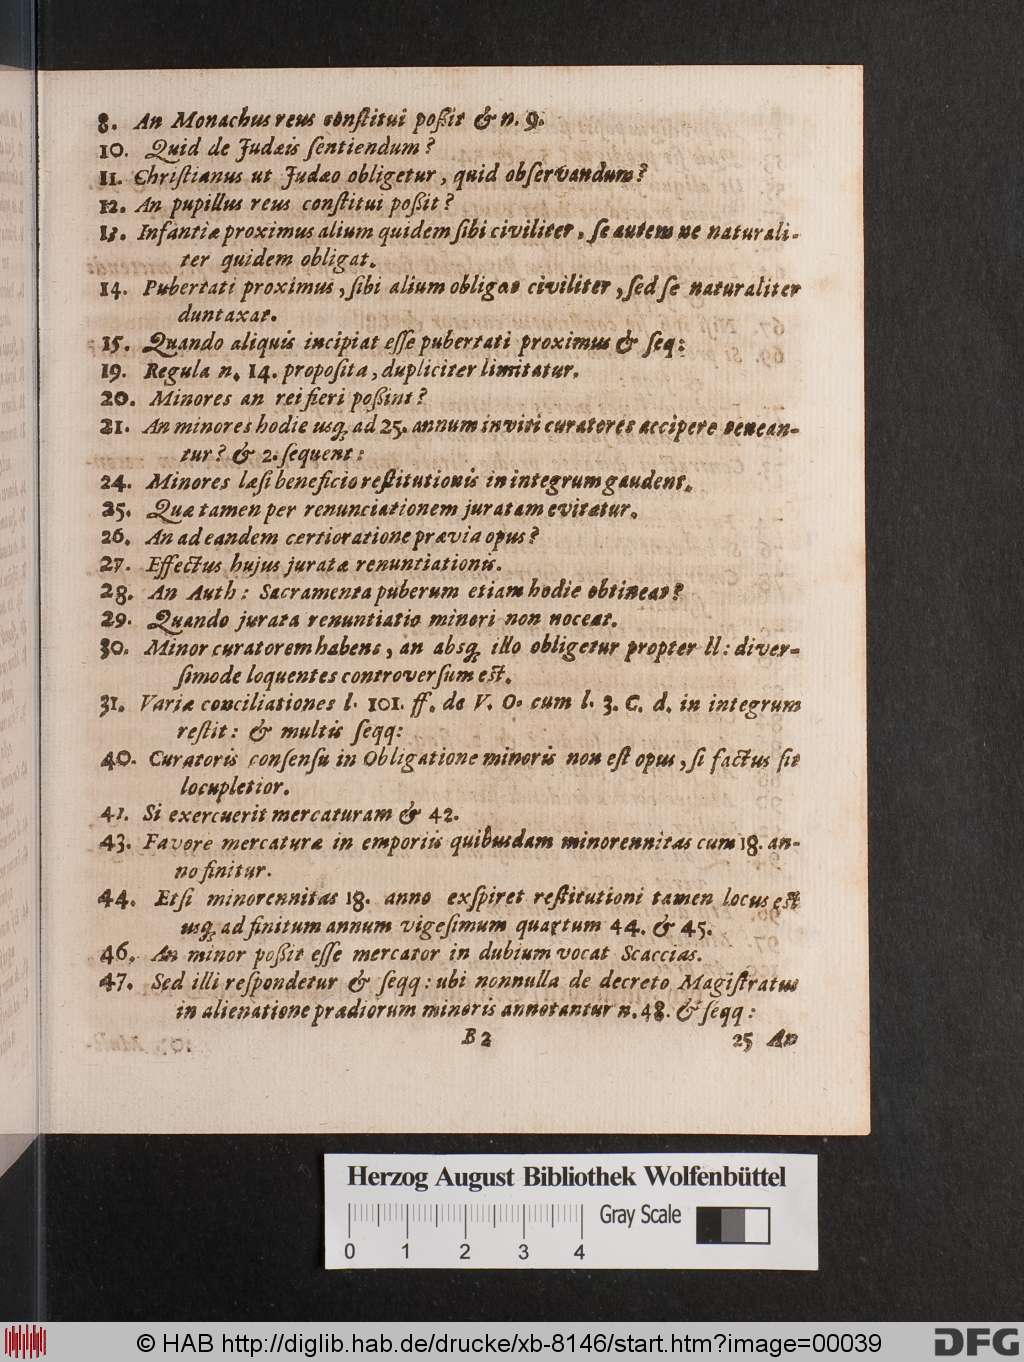 8. An Monachus reus conſtitui poßit & n. 9.
10. Quid de Judæis ſentiendum?
11. Chriſtianus ut Judæo obligetur, quid obſervandum?
12. An pupillus reus conſtitui poßit?
13. Infantiæ proximus alium quidem ſibi civiliter, ſe autem ne naturali-
ter quidem obligat.
14. Pubertati proximus, ſibi alium obligat civiliter, ſed ſe naturaliter
duntaxat.
15. Quando aliquis incipiat eſſe pubertati proximus & ſeq:
19. Regula n. 14. propoſita, dupliciter limitatur.
20. Minores an rei fieri poßint?
21. An minores hodie usq; ad 25. annum inviti curatores accipere tenean-
tur? & 2. ſequent:
24. Minores læſi beneficio reſtitutionis in integrum gaudent.
25. Quæ tamen per renunciationem juratam evitatur.
26. An ad eandem certioratione prævia opus?
27. Effectus hujus juratæ renuntiationis.
28. An Auth: Sacramenta puberum etiam hodie obtineat?
29. Quando jurata renuntiatio minori non noceat.
30. Minor curatorem habens, an absq; illo obligetur propter ll: diver-
ſimode loquentes controverſum eſt.
31. Variæ conciliationes l. 101. ff. de V. O. cum l. 3. C. d. in integrum
reſtit: & multis ſeqq:
40. Curatoris conſenſu in Obligatione minoris non eſt opus, ſi factus ſit
locupletior.
41. Si exercuerit mercaturam & 42.
43. Favore mercaturæ in emporiis quibusdam minorennitas cum 18. an-
no finitur.
44. Etſi minorennitas 18. anno exſpiret reſtitutioni tamen locus eſt
usq; ad finitum annum vigeſimum quartum 44. & 45.
46. An minor poßit eſſe mercator in dubium vocat Scaccias.
47. Sed illi reſpondetur & ſeqq: ubi nonnulla de decreto Magiſtratus
in alienatione prædiorum minoris annotantur n. 48. & ſeqq:
B 2
25 An
Herzog August Bibliothek Wolfenbüttel
Gray Scale
0 1 2 3 4
© HAB http://diglib.hab.de/drucke/xb-8146/start.htm?image=00039
DFG